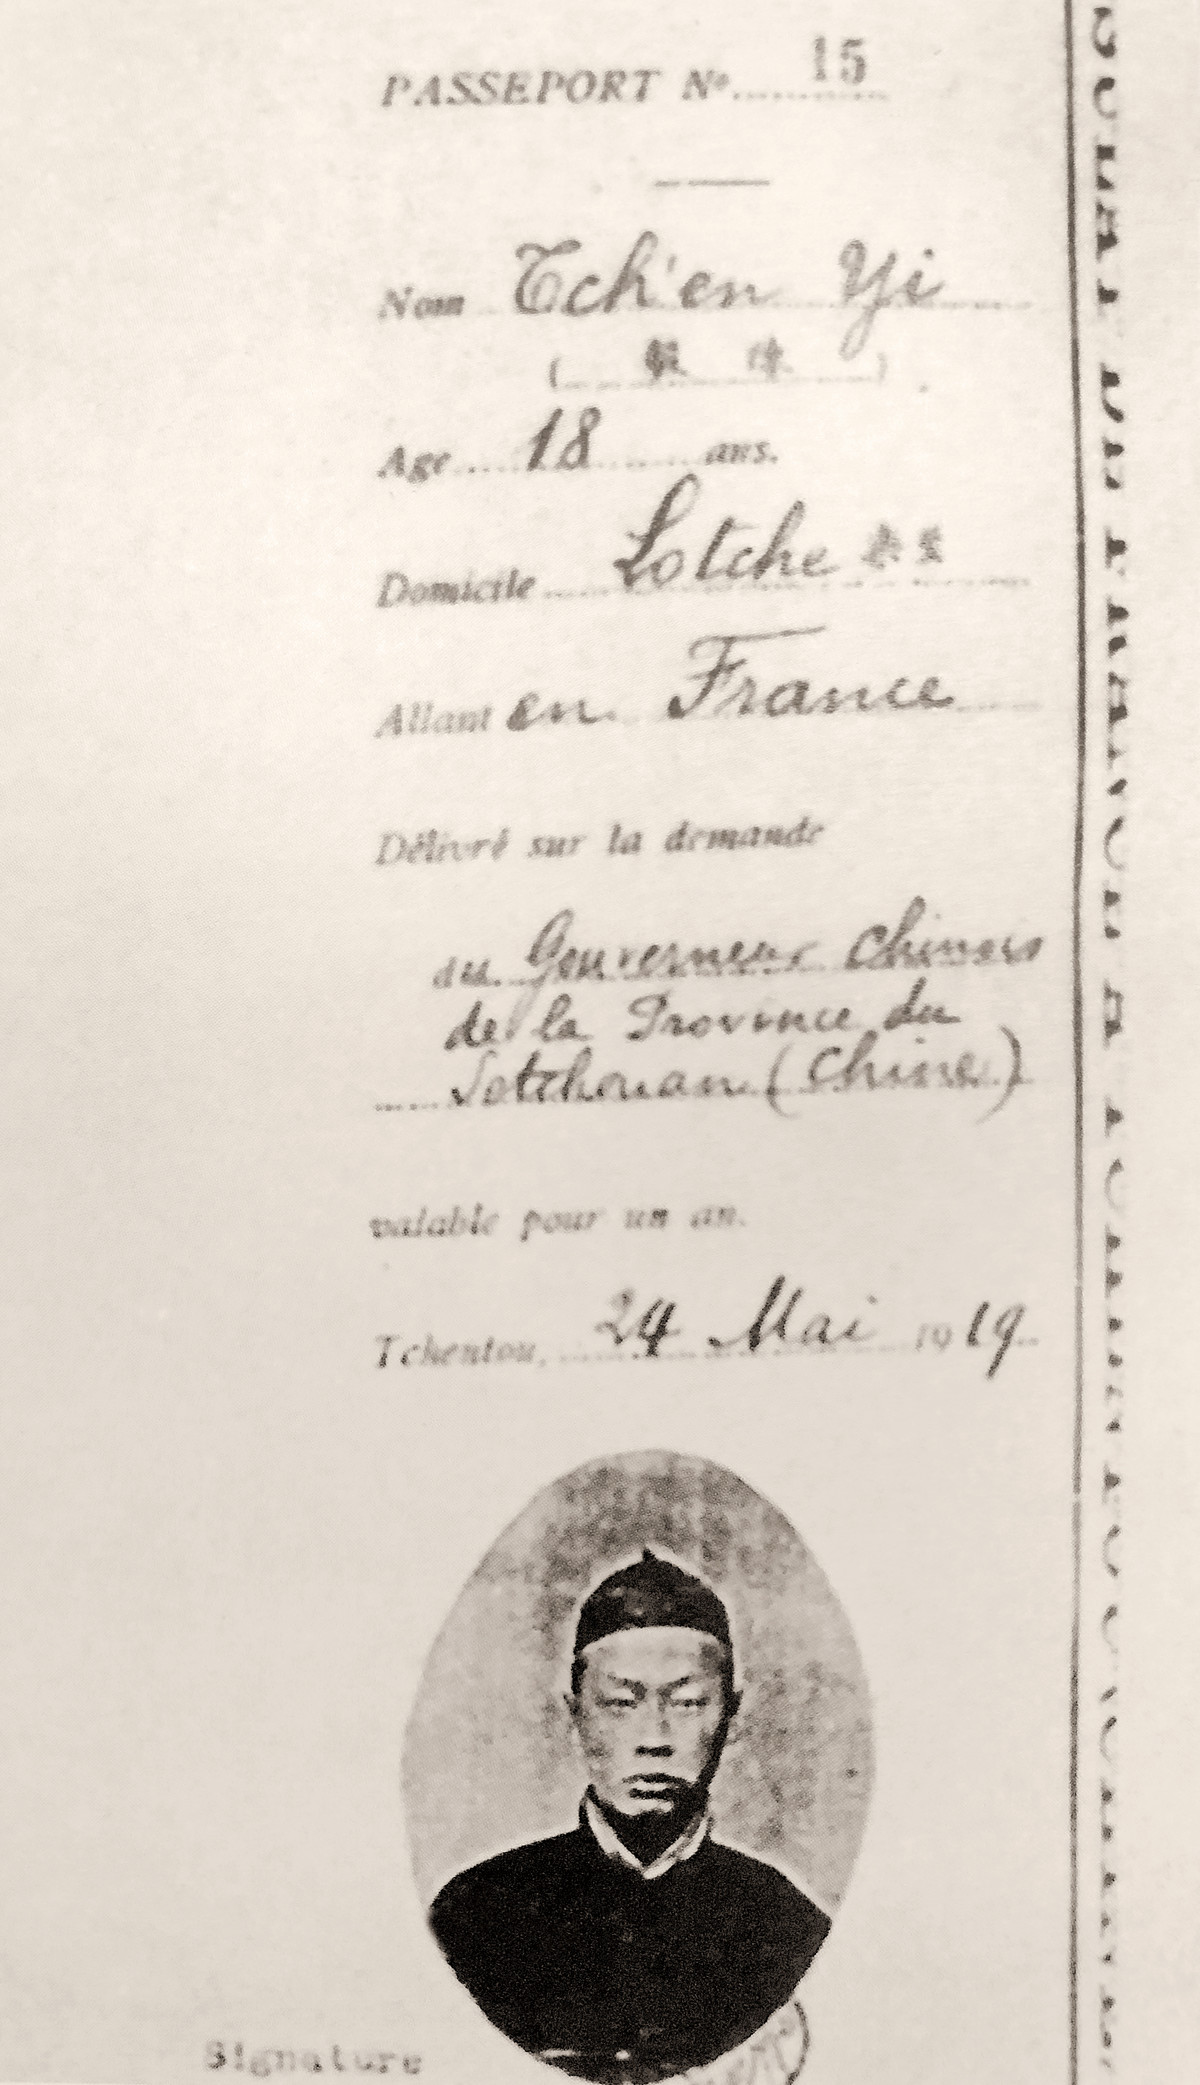 PASSEPORT Nº 15
Nom Tch'en Yi
( 毅 陳 )
Age 18 ans.
Domicile Lotche 樂至
Allant en France
Délivré sur la demande
du Gouverneur Chinois
de la Province du
Setchouan (Chine)
valable pour un an.
Tchentou, 24 Mai 1919
Signature